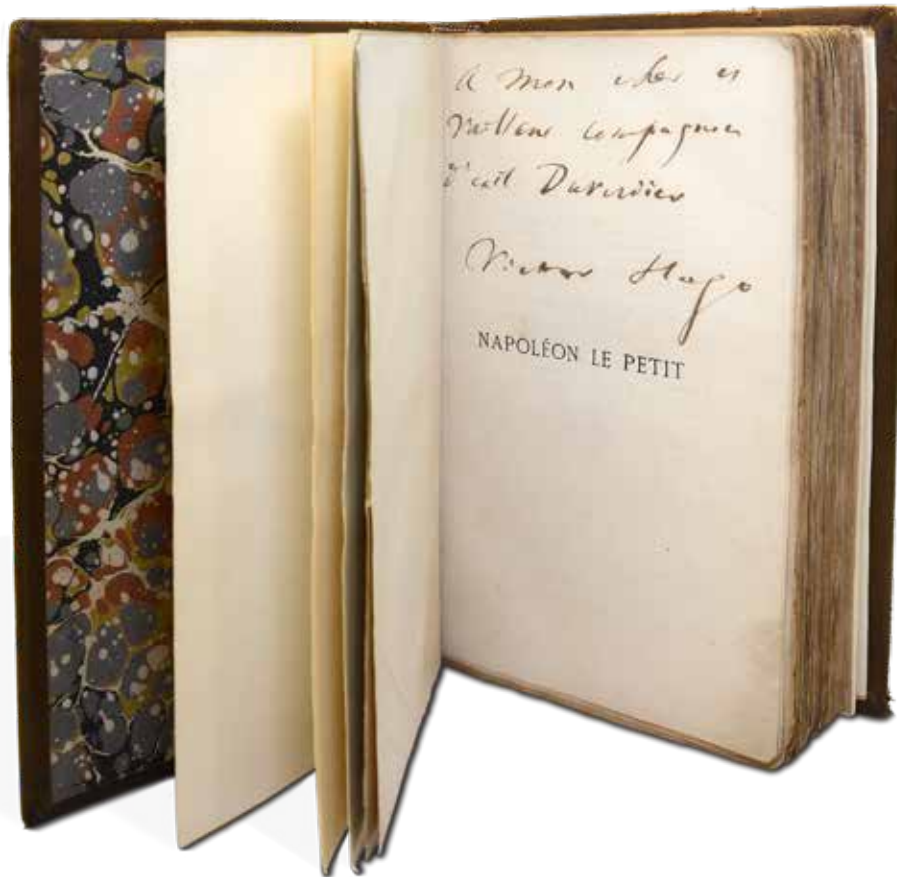 A mon cher et
vaillant compagnon
d'exil Duverdier
Victor Hugo
NAPOLÉON LE PETIT